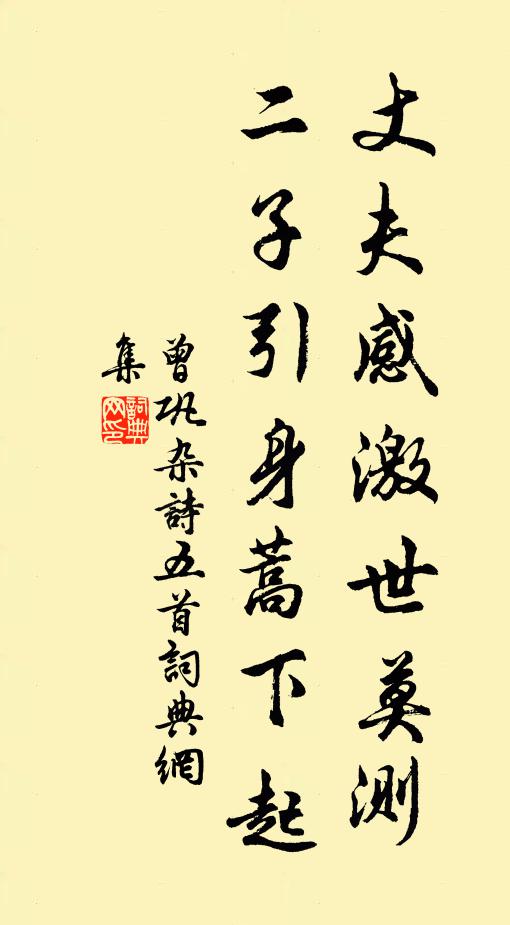 丈夫感激世莫測
二子引身蒿下起
曾巩杂詩五首詞典網
集
詞典
网印